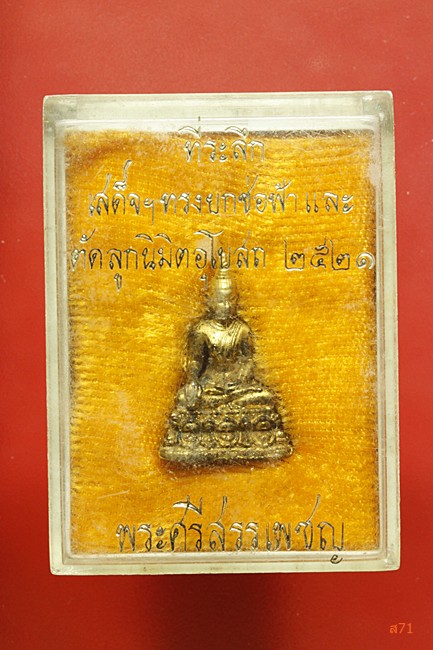 ที่ระลึก
เสด็จฯ ทรงยกช่อฟ้า และ
ตัดลูกนิมิตอุโบสถ ๒๕๒๑
พระศรีสรรเพชญ
ส71